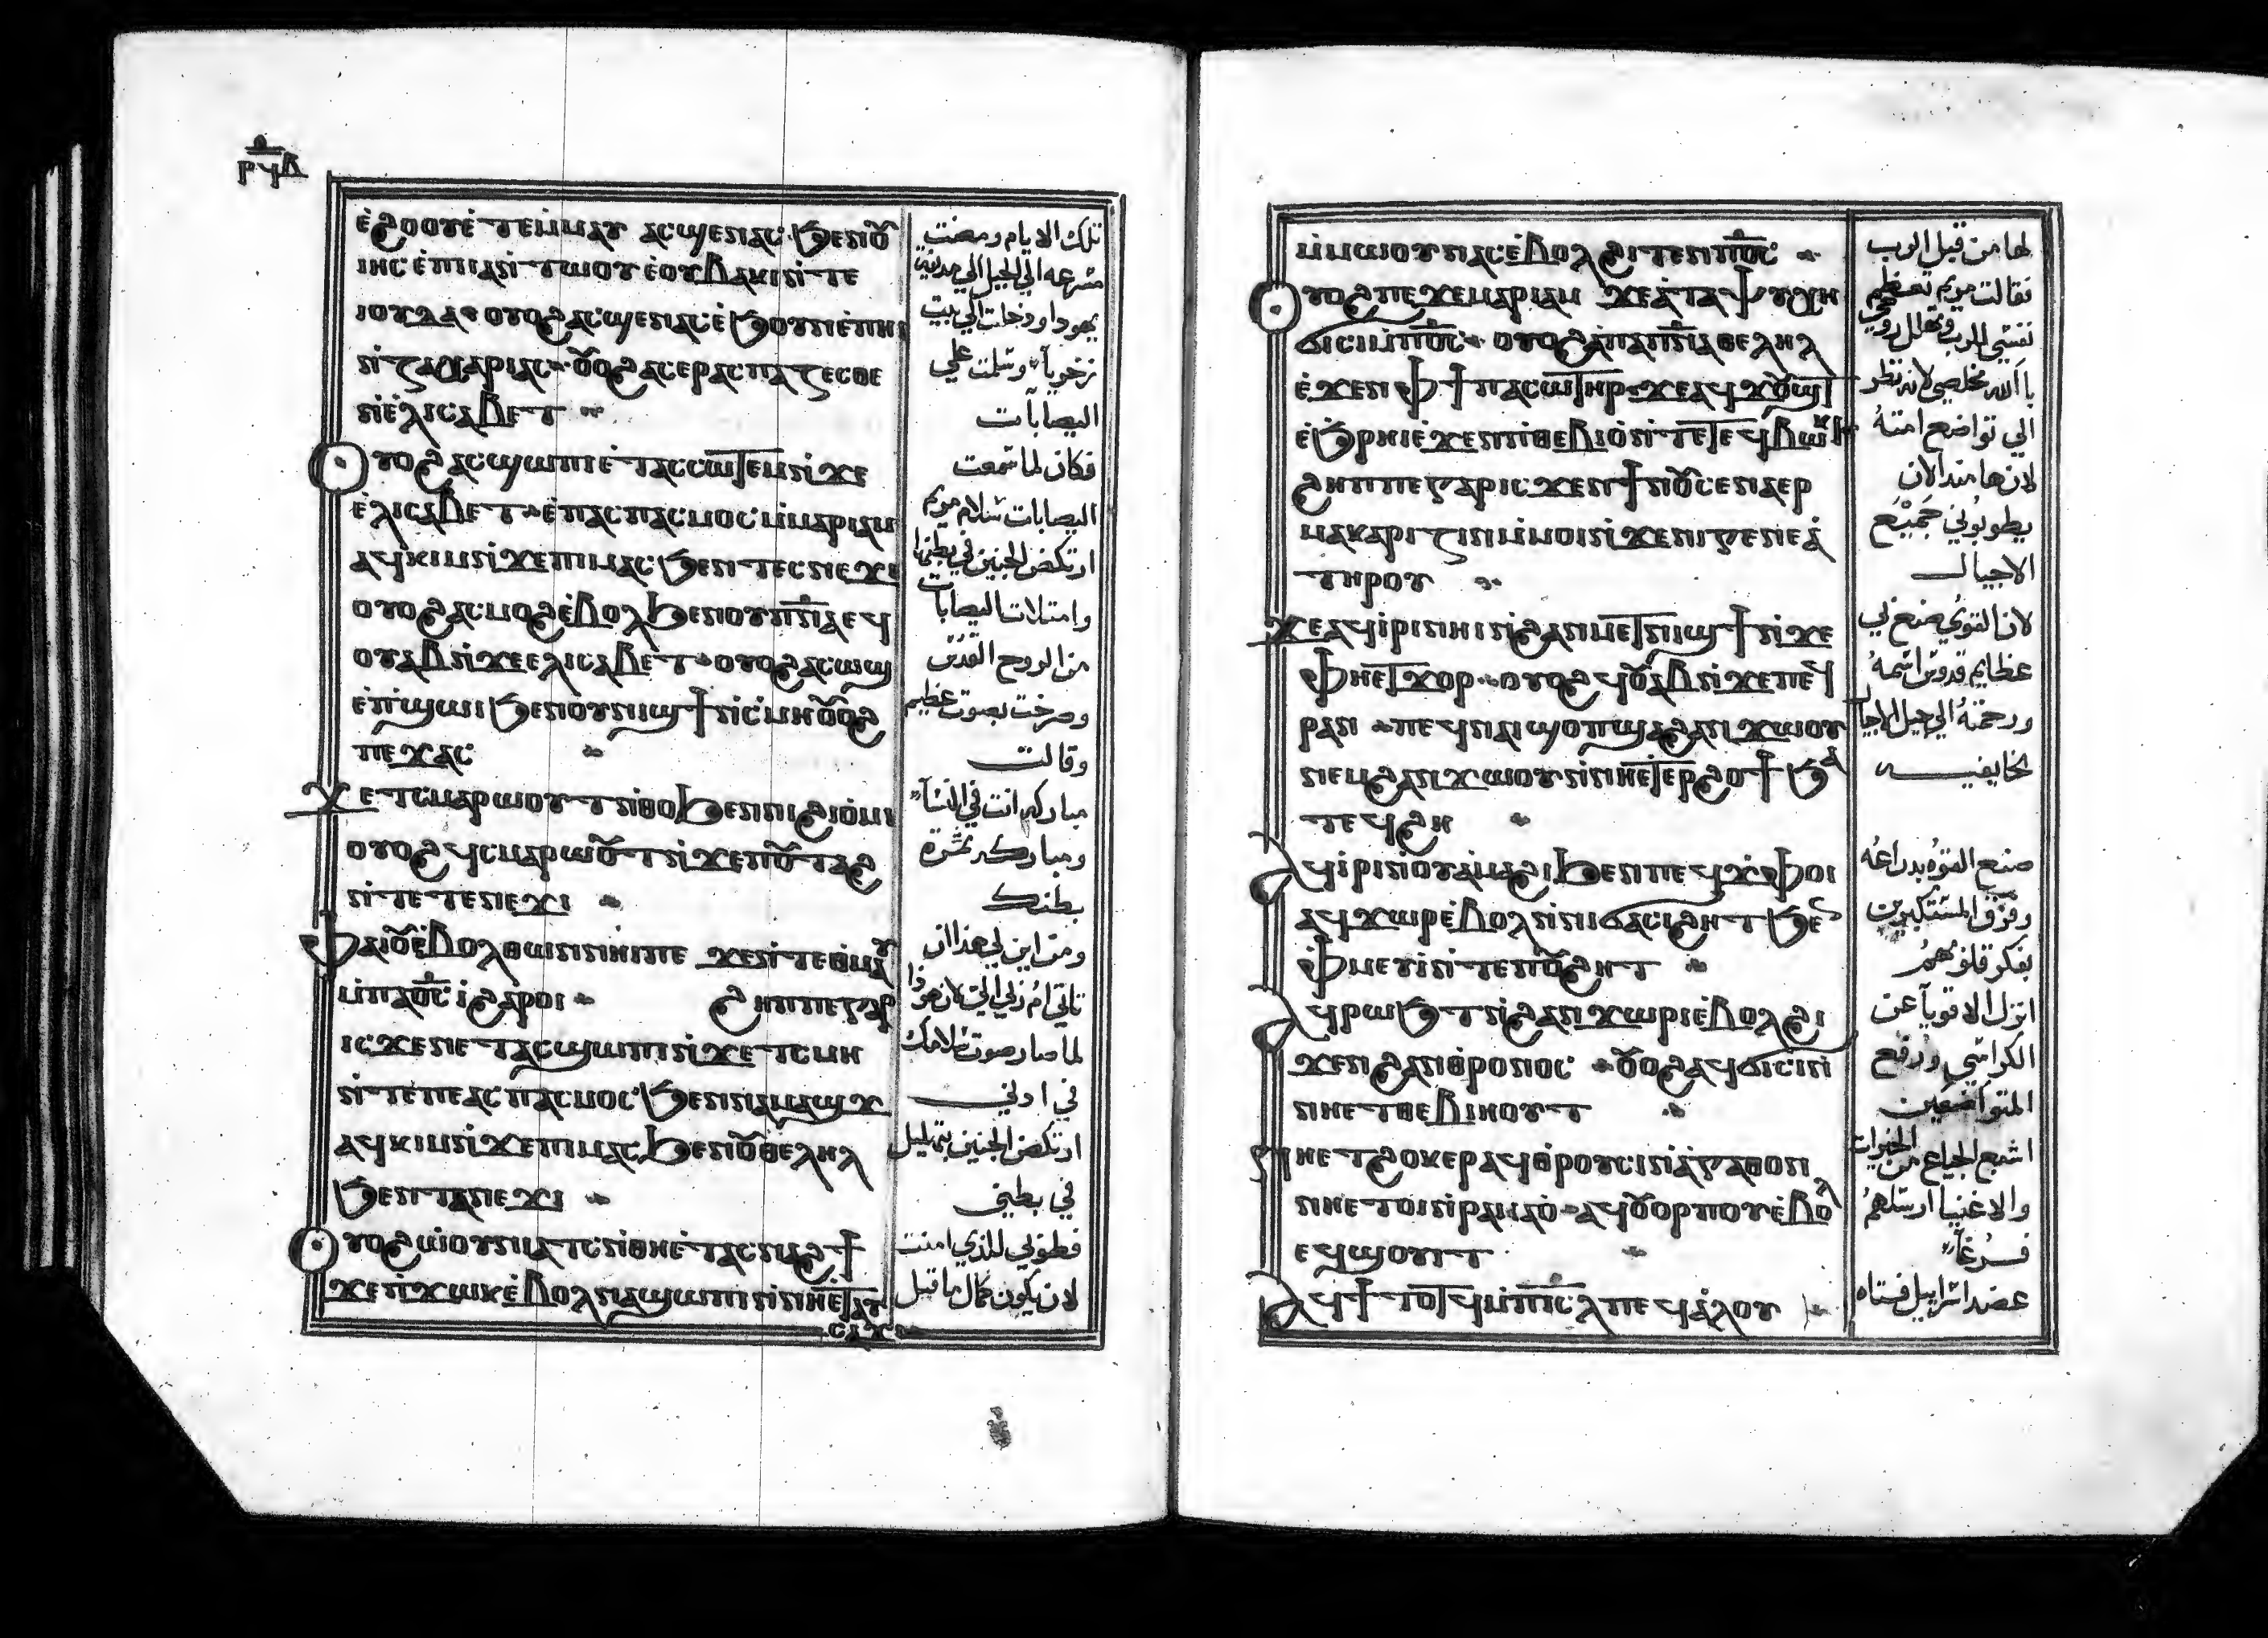 ⲣϥⲃ
ⲉ̀ϩⲟⲟⲩⲉ̀ ⲧⲉⲙ̀ⲙⲁⲩ ⲁⲥϣⲉⲛⲁⲥ ϧⲉⲛⲟⲩ
ⲓⲏⲥ ⲉ̀ⲡⲓⲁⲛⲧⲱⲟⲩ ⲉ̀ⲟⲩⲃⲁⲕⲓ ⲛ̀ⲧⲉ
ⲓⲟⲩⲇⲁ ⲟⲩⲟϩ ⲁⲥϣⲉⲛⲁⲥ ⲉ̀ϧⲟⲩⲛ ⲉ̀ⲡⲏⲓ
ⲛ̀ⲍⲁⲭⲁⲣⲓⲁⲥ ⲟⲩⲟϩ ⲁⲥⲉⲣⲁⲥⲡⲁⲍⲉⲥⲑⲉ
ⲛ̀ⲉ̀ⲗⲓⲥⲁⲃⲉⲧ
ⲟⲩⲟϩ ⲁⲥϣⲱⲡⲓ ⲉ̀ⲧⲁⲥⲥⲱⲧⲉⲙ ⲛ̀ϫⲉ
ⲉ̀ⲗⲓⲥⲁⲃⲉⲧ ⲉ̀ⲡⲁⲥⲡⲁⲥⲙⲟⲥ ⲙ̀ⲙⲁⲣⲓⲁⲙ
ⲁϥⲕⲓⲙ ⲛ̀ϫⲉⲡⲓⲙⲁⲥ ϧⲉⲛ ⲧⲉⲥⲛⲉϫⲓ
ⲟⲩⲟϩ ⲁⲥⲙⲟϩ ⲉ̀ⲃⲟⲗ ϧⲉⲛⲟⲩⲡⲛⲁ ⲉϥ
ⲟⲩⲁⲃ ⲛ̀ϫⲉⲉⲗⲓⲥⲁⲃⲉⲧ ⲟⲩⲟϩ ⲁⲥⲱϣ
ⲉ̀ⲡ̀ϣⲱⲓ ϧⲉⲛⲟⲩⲛⲓϣϯ ⲛ̀ⲥ̀ⲙⲏ ⲟⲩⲟϩ
ⲡⲉϫⲁⲥ
ϫⲉ ⲧⲥⲙⲁⲣⲱⲟⲩⲧ ⲛ̀ⲑⲟ ϧⲉⲛⲛⲓϩⲓⲟ̀ⲙⲓ
ⲟⲩⲟϩ ϥⲥⲙⲁⲣⲱⲟⲩⲧ ⲛ̀ϫⲉⲡⲟⲩⲧⲁϩ
ⲛ̀ⲧⲉ ⲧⲉⲛⲉϫⲓ
ⲫⲁⲓ ⲟⲩⲉ̀ⲃⲟⲗⲑⲱⲛ ⲛⲏⲓ ⲡⲉ ϫⲉⲛ̀ⲧⲉⲑⲙⲁⲩ
ⲙ̀ⲡⲁⲟ̅ⲥ̅ ⲓ̀ ϩⲁⲣⲟⲓ ϩⲏⲡⲡⲉ ⲅⲁⲣ
ⲓⲥϫⲉⲛ ⲉⲧⲁⲥϣⲱⲡⲓ ⲛ̀ϫⲉ ⲧⲥⲙⲏ
ⲛ̀ⲧⲉ ⲡⲉⲁⲥⲡⲁⲥⲙⲟⲥ ϧⲉⲛⲛⲁⲙⲁϣϫ
ⲁϥⲕⲓⲙ ⲛ̀ϫⲉⲡⲓⲙⲁⲥ ϧⲉⲛⲟⲩⲑⲉⲗⲏⲗ
ϧⲉⲛ ⲧⲁⲛⲉϫⲓ
ⲟⲩⲟϩ ⲱⲟⲩⲛⲓⲁⲧⲥ ⲛ̀ⲑⲏⲉ̀ⲧⲁⲥⲛⲁϩϯ
ϫⲉ ⲡ̀ϫⲱⲕ ⲉ̀ⲃⲟⲗ ⲛⲁϣⲱⲡⲓ ⲛ̀ⲛⲏⲉⲧⲁⲩ
ⲥⲁϫⲓ
تلك الايام ومضت
مسرعه الي الجبل الي مدينة
يهودا ودخلت الي بيت
زخريا وسلمت علي
اليصابات
فكان لما سمعت
اليصابات سلام مريم
ارتكض الجنين في بطنها
وامتلات اليصابات
من الروح القدس
وصرخت بصوت عظيم
وقالت
مباركه انت في النسآ
ومباركه ثمرة
بطنك
ومن اين لي هذا ان
تاتي ام ربي الي لان هوذا
لما صار صوت سلامك
في ادني
ارتكض الجنين بتهليل
في بطني
فطوبي للذي امنت
لان يكون كمال ما قيل
ⲙ̀ⲙⲱⲟⲩ ⲛⲁⲥ ⲉ̀ⲃⲟⲗϩⲓⲧⲉⲛ ⲡⲟ̅ⲥ̅
ⲟⲩⲟϩ ⲡⲉϫⲉⲙⲁⲣⲓⲁⲙ ϫⲉⲁ̀ ⲧⲁⲯⲩⲭⲏ
ϭⲓⲥⲓ ⲙ̀ⲡⲟ̅ⲥ̅ ⲟⲩⲟϩ ⲁ̀ⲡⲁⲡⲛⲁ ⲑⲉⲗⲏⲗ
ⲉ̀ϫⲉⲛ ⲫϯ ⲡⲁⲥⲱⲧⲏⲣ ϫⲉⲁϥϫⲟⲩϣⲧ
ⲉ̀ϧⲣⲏⲓ ⲉ̀ϫⲉⲛⲡⲓⲑⲉⲃⲓⲟ̀ ⲛ̀ⲧⲉ ⲧⲉϥⲃⲱⲕⲓ
ϩⲏⲡⲡⲉ ⲅⲁⲣ ⲓⲥϫⲉⲛ ϯⲛⲟⲩ ⲥⲉⲛⲁⲉⲣ
ⲙⲁⲕⲁⲣⲓⲍⲓⲛ ⲙ̀ⲙⲟⲓ ⲛ̀ϫⲉⲛⲓⲅⲉⲛⲉⲁ̀
ⲧⲏⲣⲟⲩ
ϫⲉⲁϥⲓⲣⲓ ⲛⲏⲓ ⲛ̀ϩⲁⲛⲙⲉⲧⲛⲓϣϯ ⲛ̀ϫⲉ
ⲫⲏⲉⲧϫⲟⲣ ⲟⲩⲟϩ ϥⲟⲩⲁⲃ ⲛ̀ϫⲉⲡⲉϥ
ⲣⲁⲛ ⲡⲉϥⲛⲁⲓ ϣⲟⲡ ϣⲁϩⲁⲛϫⲱⲟⲩ
ⲛⲉⲙϩⲁⲛϫⲱⲟⲩ ⲛ̀ⲛⲏⲉⲧⲉⲣϩⲟϯ ϧⲁ
ⲧⲉϥϩⲏ
ⲁϥⲓⲣⲓ ⲛ̀ⲟⲩⲁ̀ⲙⲁϩⲓ ϧⲉⲛ ⲡⲉϥϫ̀ⲫⲟⲓ
ⲁϥϫⲱⲣ ⲉ̀ⲃⲟⲗ ⲛ̀ⲛⲓϭⲁⲥⲓϩⲏⲧ ϧⲉⲛ
ⲫⲙⲉⲩⲓ ⲛ̀ⲧⲉ ⲡⲟⲩϩⲏⲧ
ⲁϥⲣⲱϧⲧ ⲛ̀ϩⲁⲛϫⲱⲣⲓ ⲉ̀ⲃⲟⲗϩⲓ
ϫⲉⲛ ϩⲁⲛⲑⲣⲟⲛⲟⲥ ⲟⲩⲟϩ ⲁϥϭⲓⲥⲓ
ⲛ̀ⲛⲏⲉⲧⲑⲉⲃⲓⲏⲟⲩⲧ
ⲛⲏⲉⲧϩⲟⲕⲉⲣ ⲁϥⲑⲣⲟⲩⲥⲓ ⲛ̀ⲁ̀ⲅⲁⲑⲟⲛ
ⲛⲏⲉⲧⲟⲓ ⲛ̀ⲣⲁⲙⲁⲟ̀ ⲁϥⲟⲩⲟⲣⲡⲟⲩ ⲉ̀ⲃⲟⲗ
ⲉⲩϣⲟⲩⲓⲧ
ⲁϥϯⲧⲟⲧϥ ⲙ̀ⲡⲓⲥ̅ⲗ̅ ⲡⲉϥⲁ̀ⲗⲟⲩ
لها من قبل الرب
فقالت مريم تعظم
نفسي للرب وتهلل روحي
باالله مخلصي لانه نظر
الي تواضع امته
لان ها مند الان
يطوبوني جميع
الاجيال
لان القوي صنع بي
عظايم قدوس اسمه
ورحمته الي جيل الاجيال
لخايفيه
صنع القوه بدراعه
وفرق المستكبرين
بفكر قلوبهم
انزل الاقويآ عن
الكراسي ورفع
المتواضعين
اشبع الجياع من الخيرات
والاغنيا ارسلهم
فرغاً
عضد اسراييل فتاه